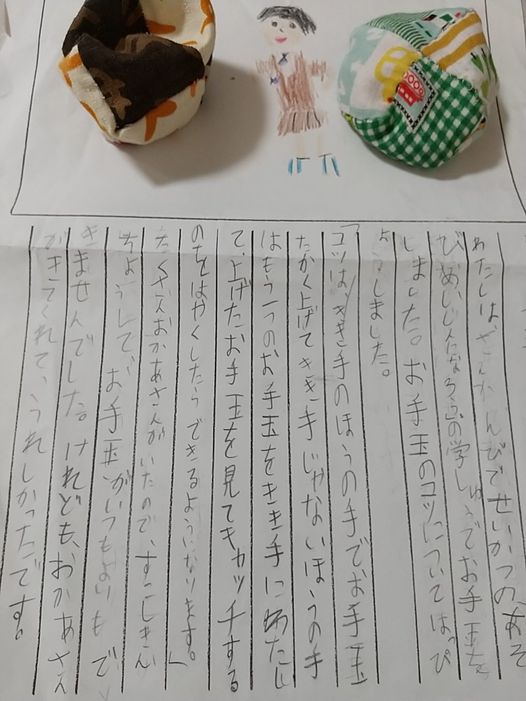 わたしはさんかんびでせいかつの「あそ
びめいじんになろう」の学しゅうでお手玉を
しました。お手玉のコツについてはっぴ
ょうしました。
「コツは、きき手のほうの手でお手玉
たかく上げてきき手じゃないほうの手
はもう一つのお手玉をきき手にわたし
て、上げたお手玉を見てキャッチする
のをはやくしたらできるようになります。」
たくさんおかあさんがいたので、すこしきん
ちょうして、お手玉がいつもよりもで
きませんでした。けれども、おかあさん
がきてくれて、うれしかったです。